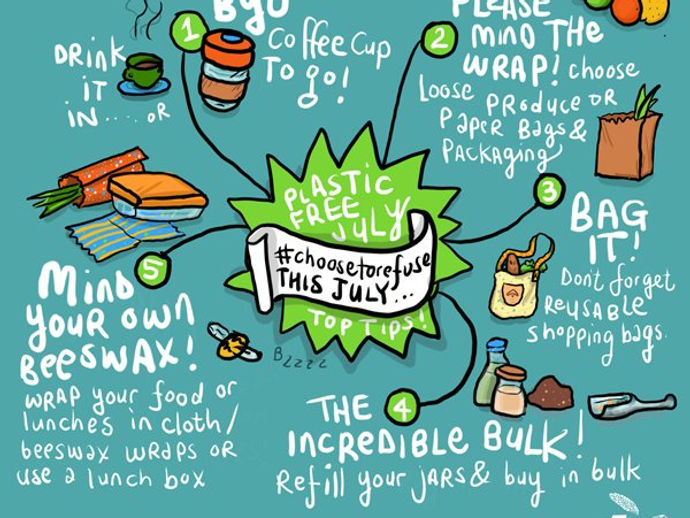 1
DRINK
IT
IN..... OR
BYO
Coffee Cup
To go!
2
PLEASE
MIND THE
WRAP! choose
Loose PRoduce OR
Paper Bags &
PACKAGING
3
BAG
IT!
Don't forget
REUSABLE
shopping bags.
PLASTIC
FREE
JULY
#choosetorefuse
THIS JULY...
TOP TIPS!
4
THE
INCREDIBLE BULK!
Refill your JARS & buy in bulk
5
MIND
YOUR OWN
BEESWAX!
WRAP your food or
lunches in cloth/
beeswax wraps or
use a lunch box
Bzzzz